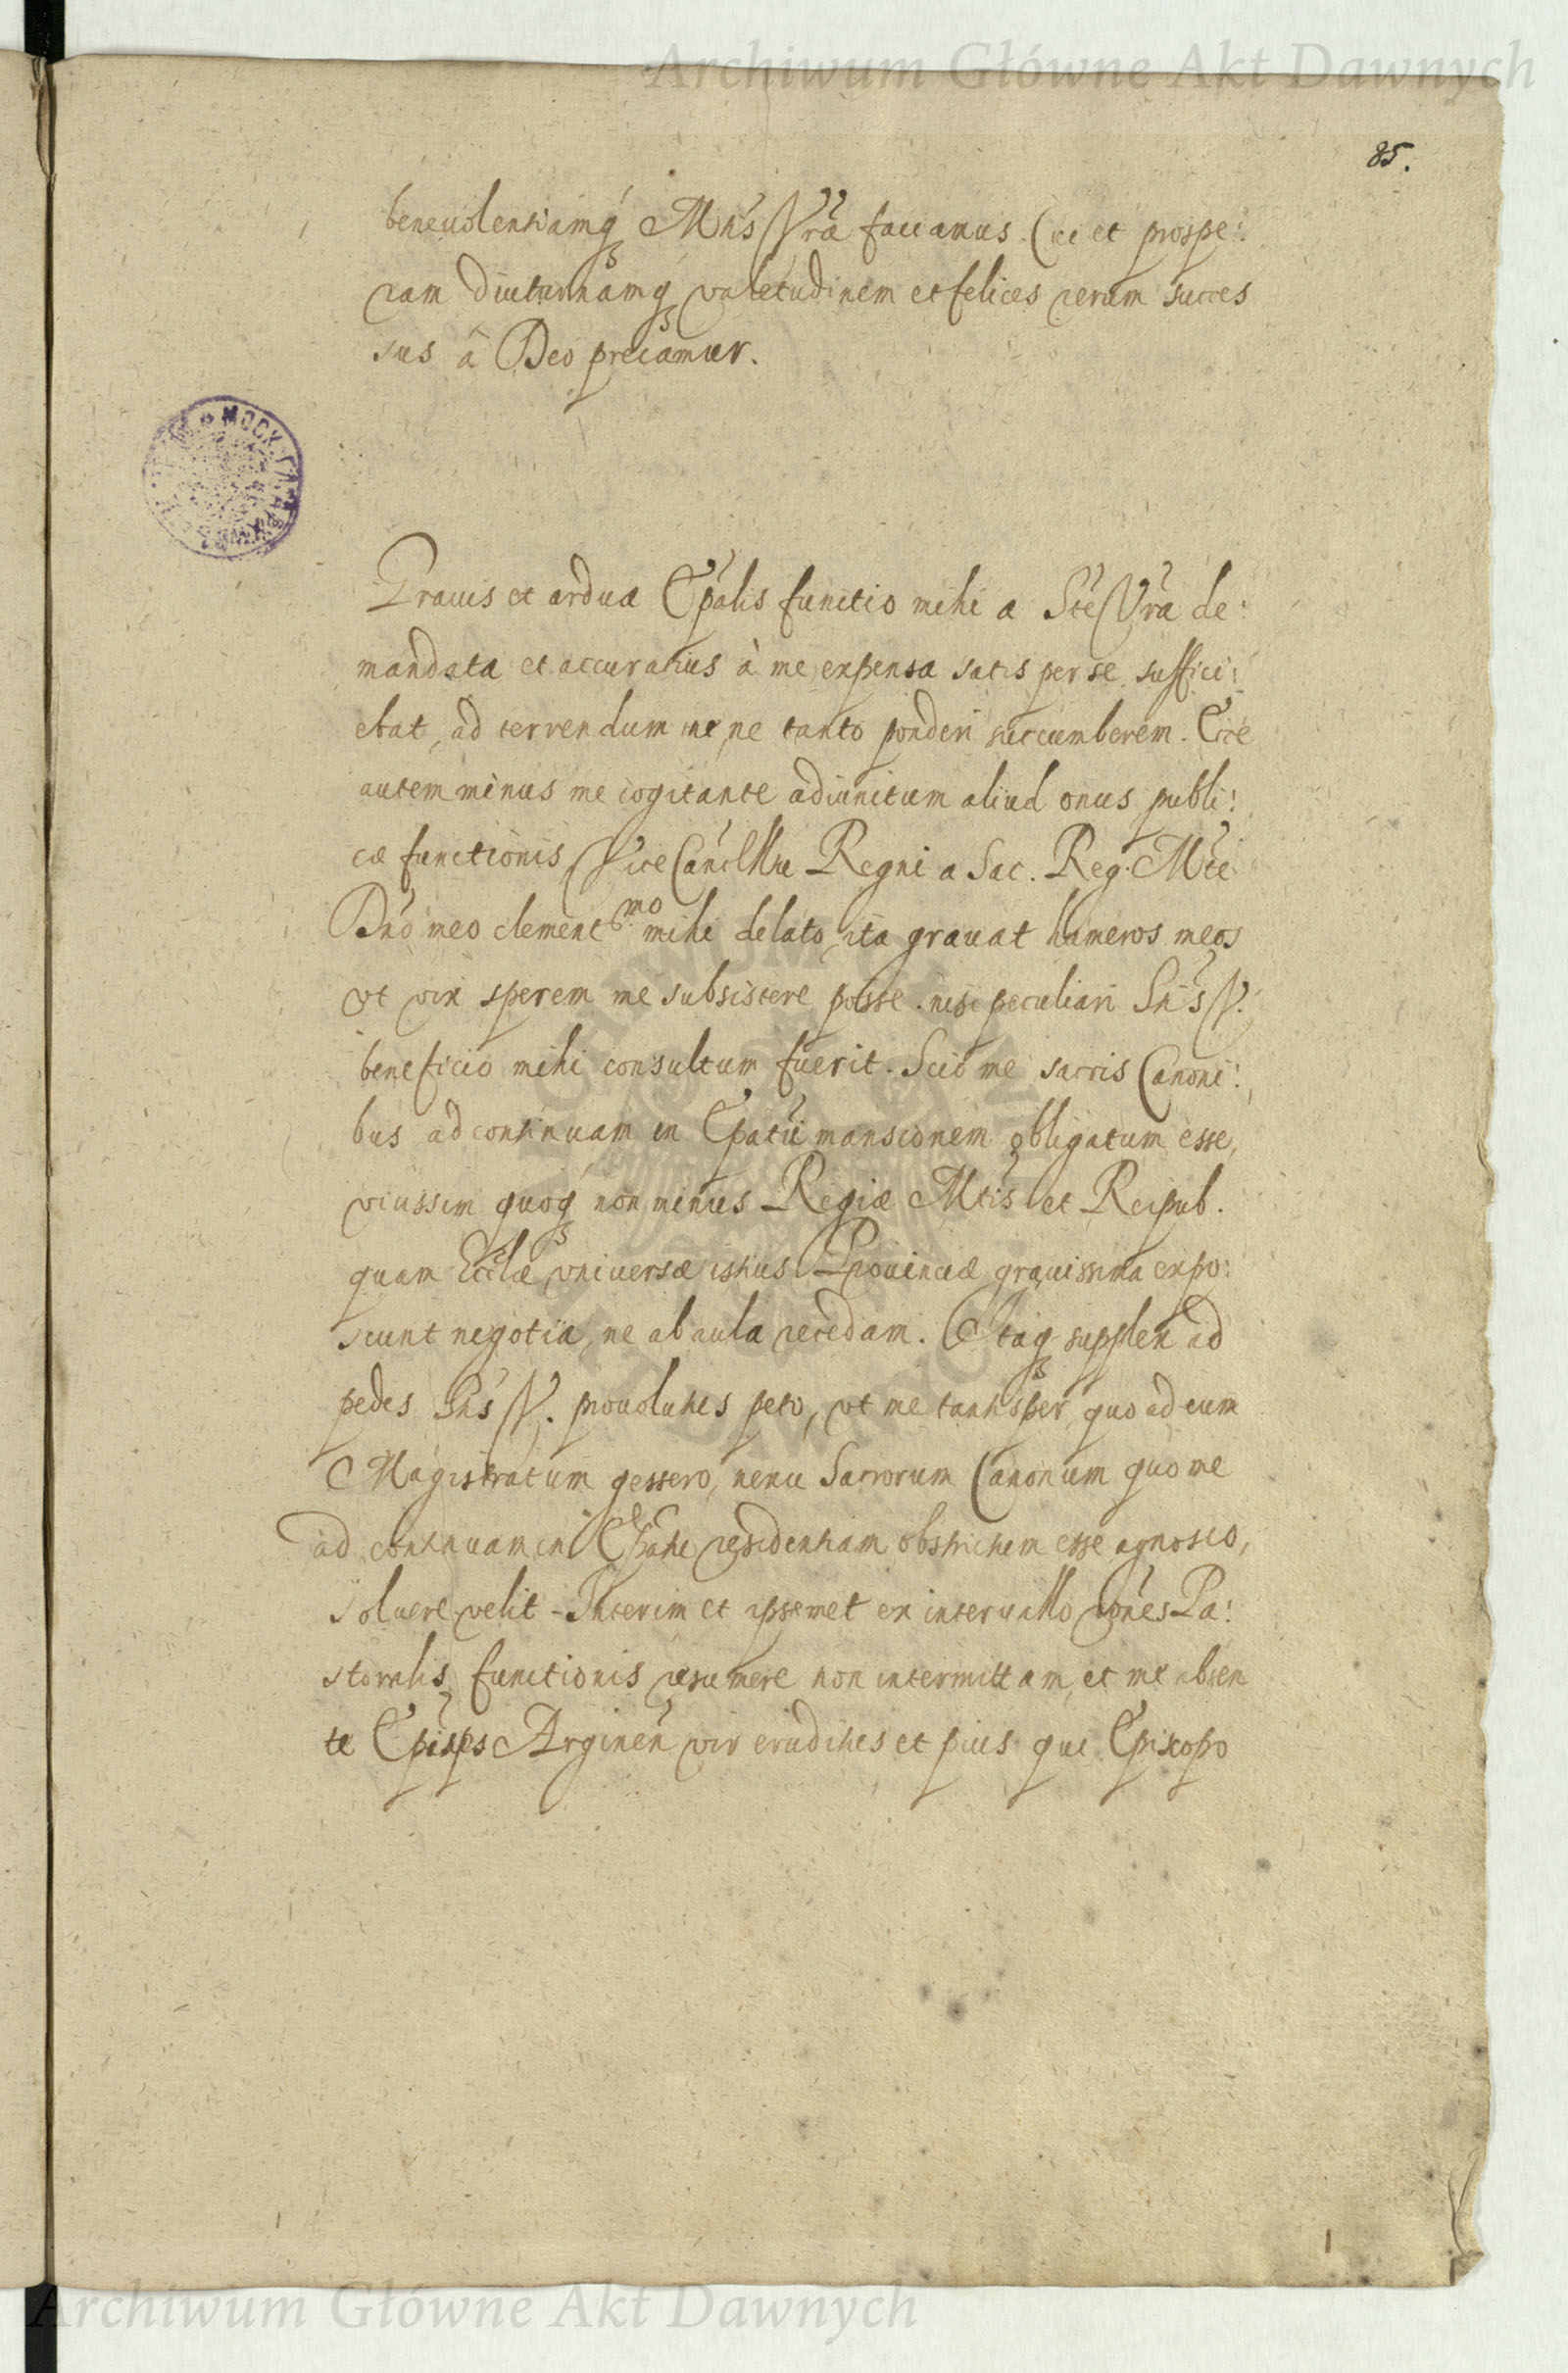 Archiwum Główne Akt Dawnych
85.
beneuolentiamq́ Mtis Vrã faciamus. Cui et prospe:
ram diuturnamq́ valetudinem et felices rerum succes
sus â Deo precamur.
МОСК
Grauis et ardua Epalis functio mihi a Ste Vra de:
mandata et accuratius à me expensa satis per se suffici:
ebat, ad terrendum me ne tanto ponderi succumberem. Ecce
autem minus me cogitante adiunctum aliud onus publi:
cæ functionis Vice Cancllriu Regni a Sac. Reg. Mte
Dno meo clementmo mihi delato, ita grauat humeros meos
vt vix sperem me subsistere posse. nisi peculiari Stis V.
beneficio mihi consultum fuerit. Scio me sacris Canoni:
bus ad continuam in Epatu mansionem obligatum esse,
viussim quoq́ non minus Regiæ Mtis et Reipub.
quam Eccliæ vniuersæ istius Prouinciæ grauissima expo:
scunt negotia, ne ab aula recedam. Itaq́ supplex ad
pedes Stis V. prouolutus peto, vt me tantisper, quo ad eum
Magistratum gessero, nexu Sacrorum Canonum quo me
ad continuam in Epatu residentiam obstrictum esse agnosco,
soluere velit. Interim et ipsemet ex interuallo rones Pa:
storalis functionis resumere non intermittam, et me absen
te Episps Arginen vir eruditus et pius qui Episcopo
Archiwum Główne Akt Dawnych